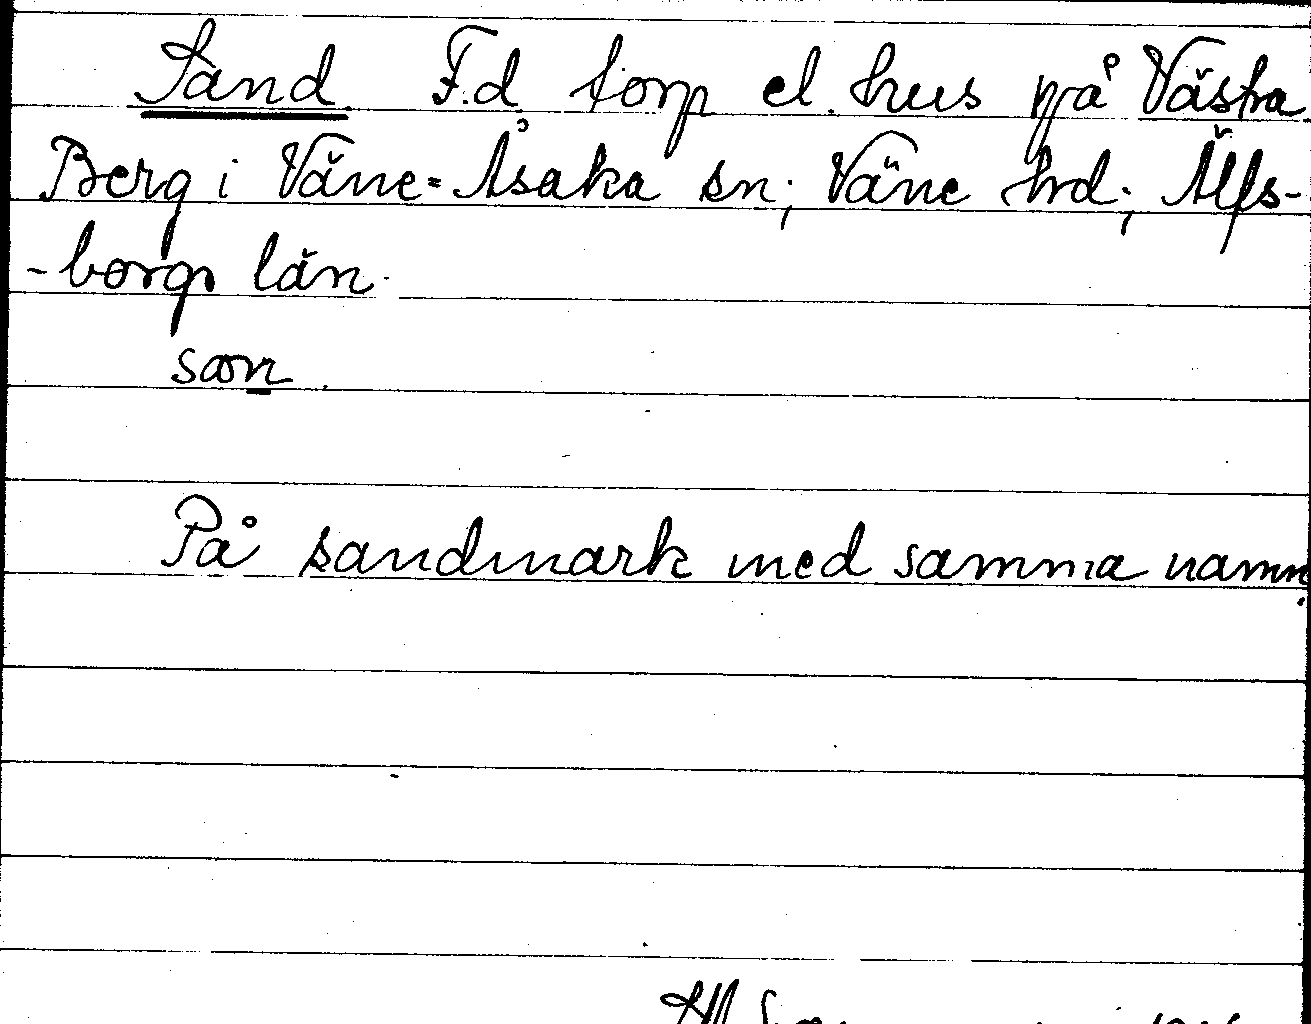 Sand. F.d. torp el. hus på Västra
Berg i Väne-Åsaka sn; Väne hrd; Älfs-
-borgs län.
san.
På sandmark med samma namn.